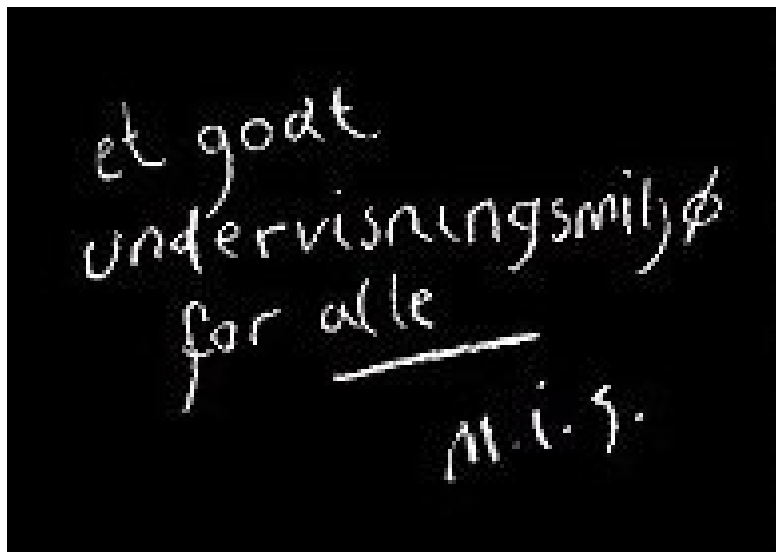 et godt
undervisningsmiljø
for alle
M.i.s.